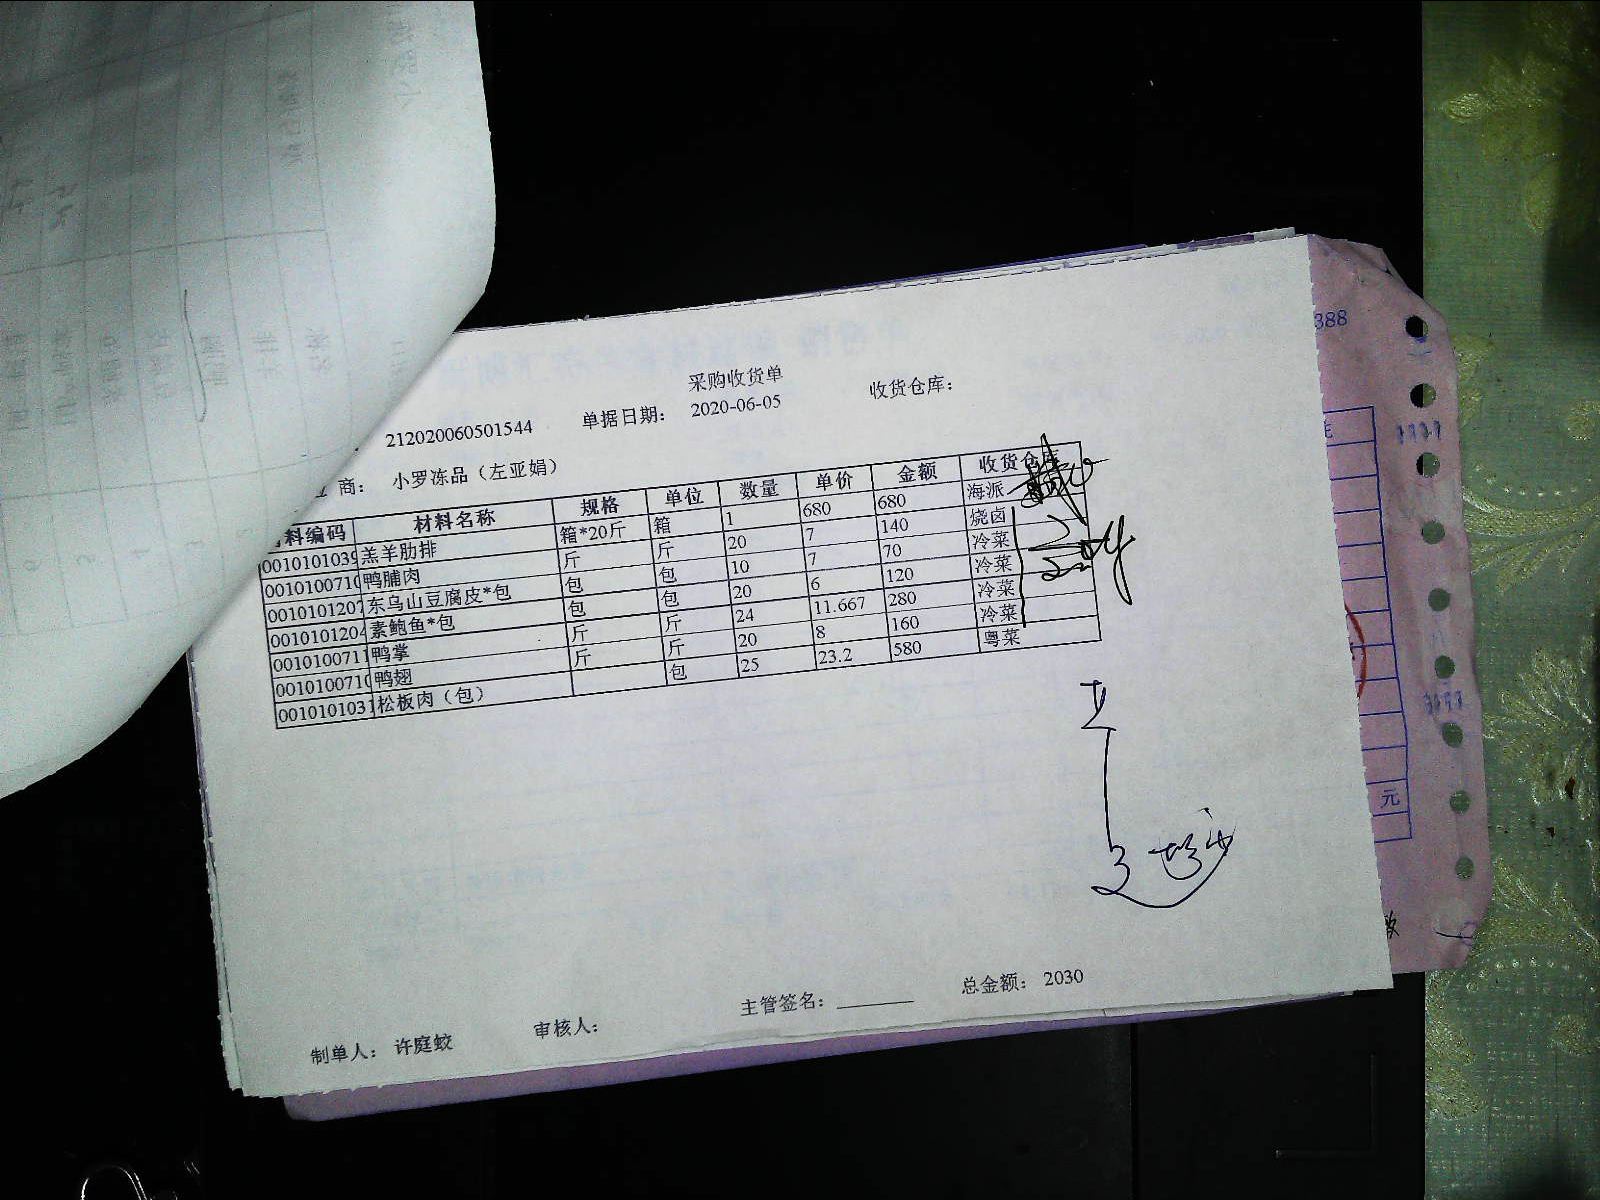 采购收货单
212020060501544 单据日期: 2020-06-05 收货仓库:
商: 小罗冻品（左亚娟）
料编码 材料名称 规格 单位 数量 单价 金额 收货仓库
0010101039 羔羊肋排 箱*20斤 箱 1 680 680 海派
001010071 鸭脯肉 斤 斤 20 7 140 烧卤
001010120 东乌山豆腐皮*包 包 包 10 7 70 冷菜
001010120 素鲍鱼*包 包 包 20 6 120 冷菜
001010071 鸭掌 斤 斤 24 11.667 280 冷菜
001010071 鸭翅 斤 斤 20 8 160 冷菜
001010103 松板肉（包） 包 25 23.2 580 粤菜
总金额: 2030
主管签名:
制单人: 许庭蛟 审核人:
388
元